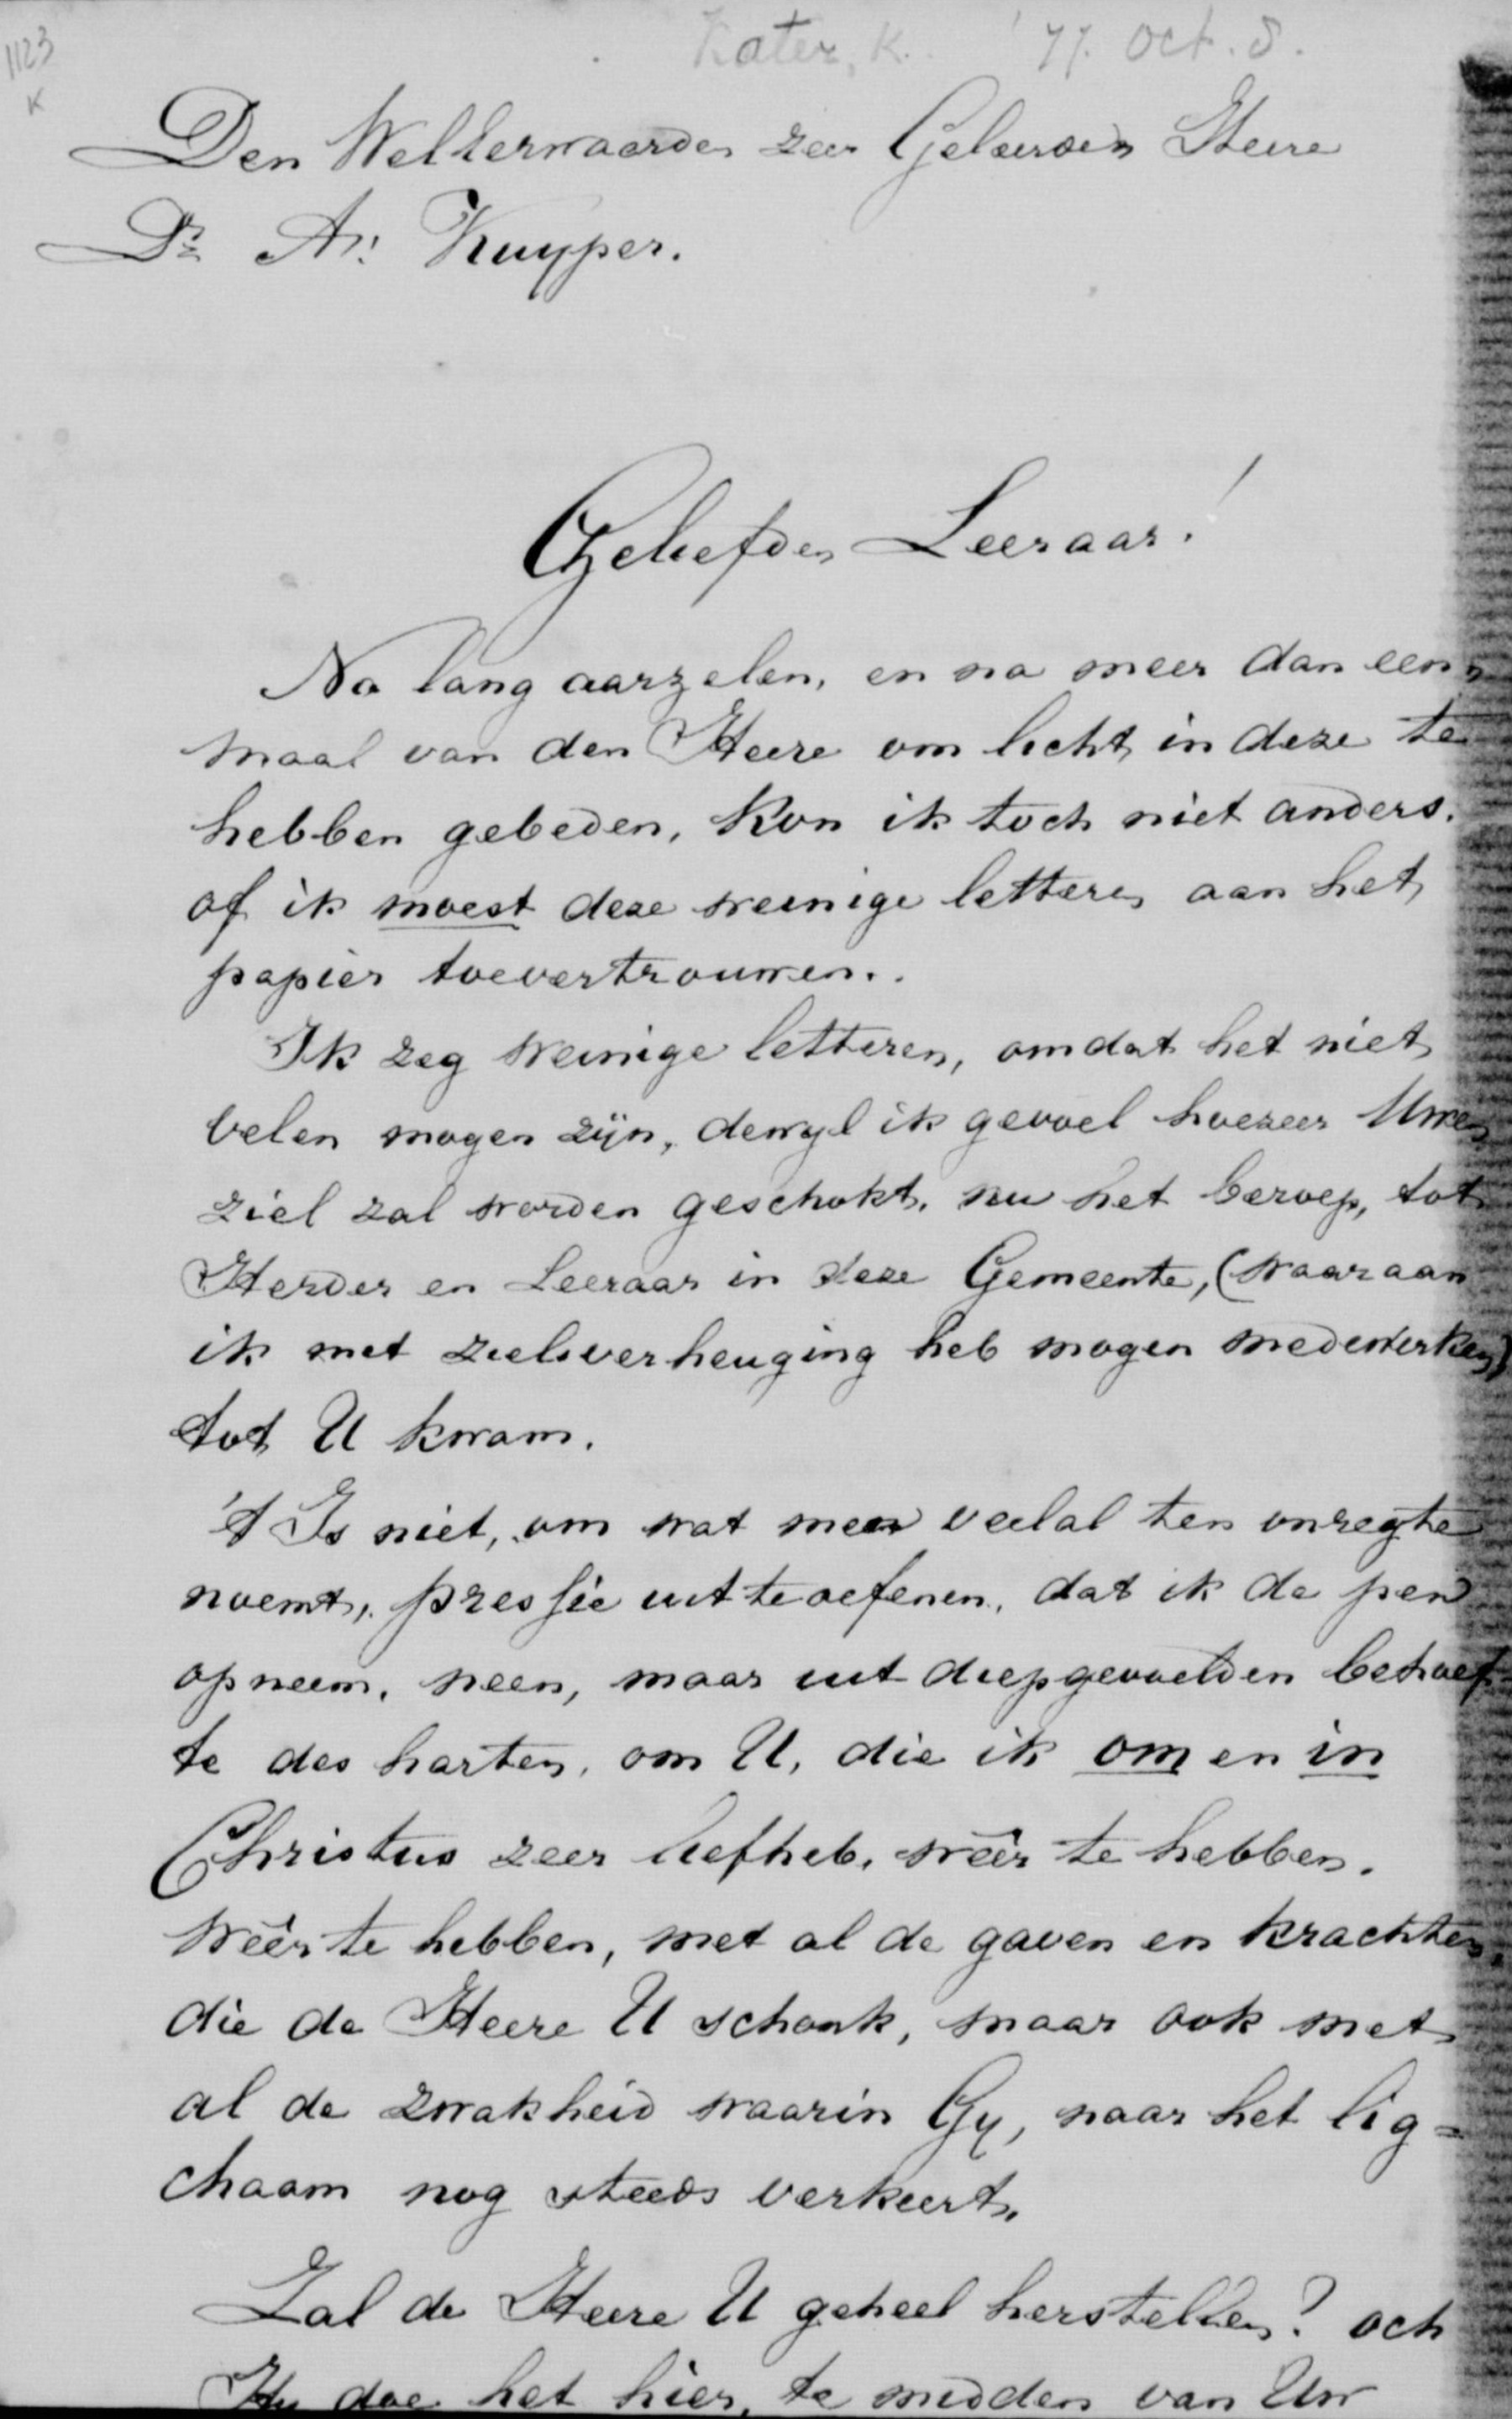 1123
K
Kater, K. '77. Oct. 8.
Den WelEerwaarden zeer Geleerden Heere
Dr. A. Kuyper.
Geliefden Leeraar!
Na lang aarzelen, en na meer dan een-
maal van den Heere om licht in deze te
hebben gebeden, kon ik toch niet anders.
of ik moest deze weinige letteren aan het
papier toevertrouwen.
Ik zeg weinige letteren, omdat het niet
velen mogen zijn, dewyl ik gevoel hoezeer Uwe
ziel zal worden geschokt, nu het beroep, tot
Herder en Leeraar in deze Gemeente, (waaraan
ik met zielsverheuging heb mogen medewerken)
tot U kwam.
't Is niet, om wat men veelal ten onregte
noemt, pressie uit te oefenen, dat ik de pen
opneem, neen, maar uit diepgevoelden behoef-
te des harten, om U, die ik om en in
Christus zeer liefheb, wêer te hebben.
Wêer te hebben, met al de gaven en krachten,
die de Heere U schonk, maar ook met
al de zwakheid waarin Gy, naar het lig=
chaam nog steeds verkeert.
Zal de Heere U geheel herstellen? och
Hy doe het hier, te midden van Uw